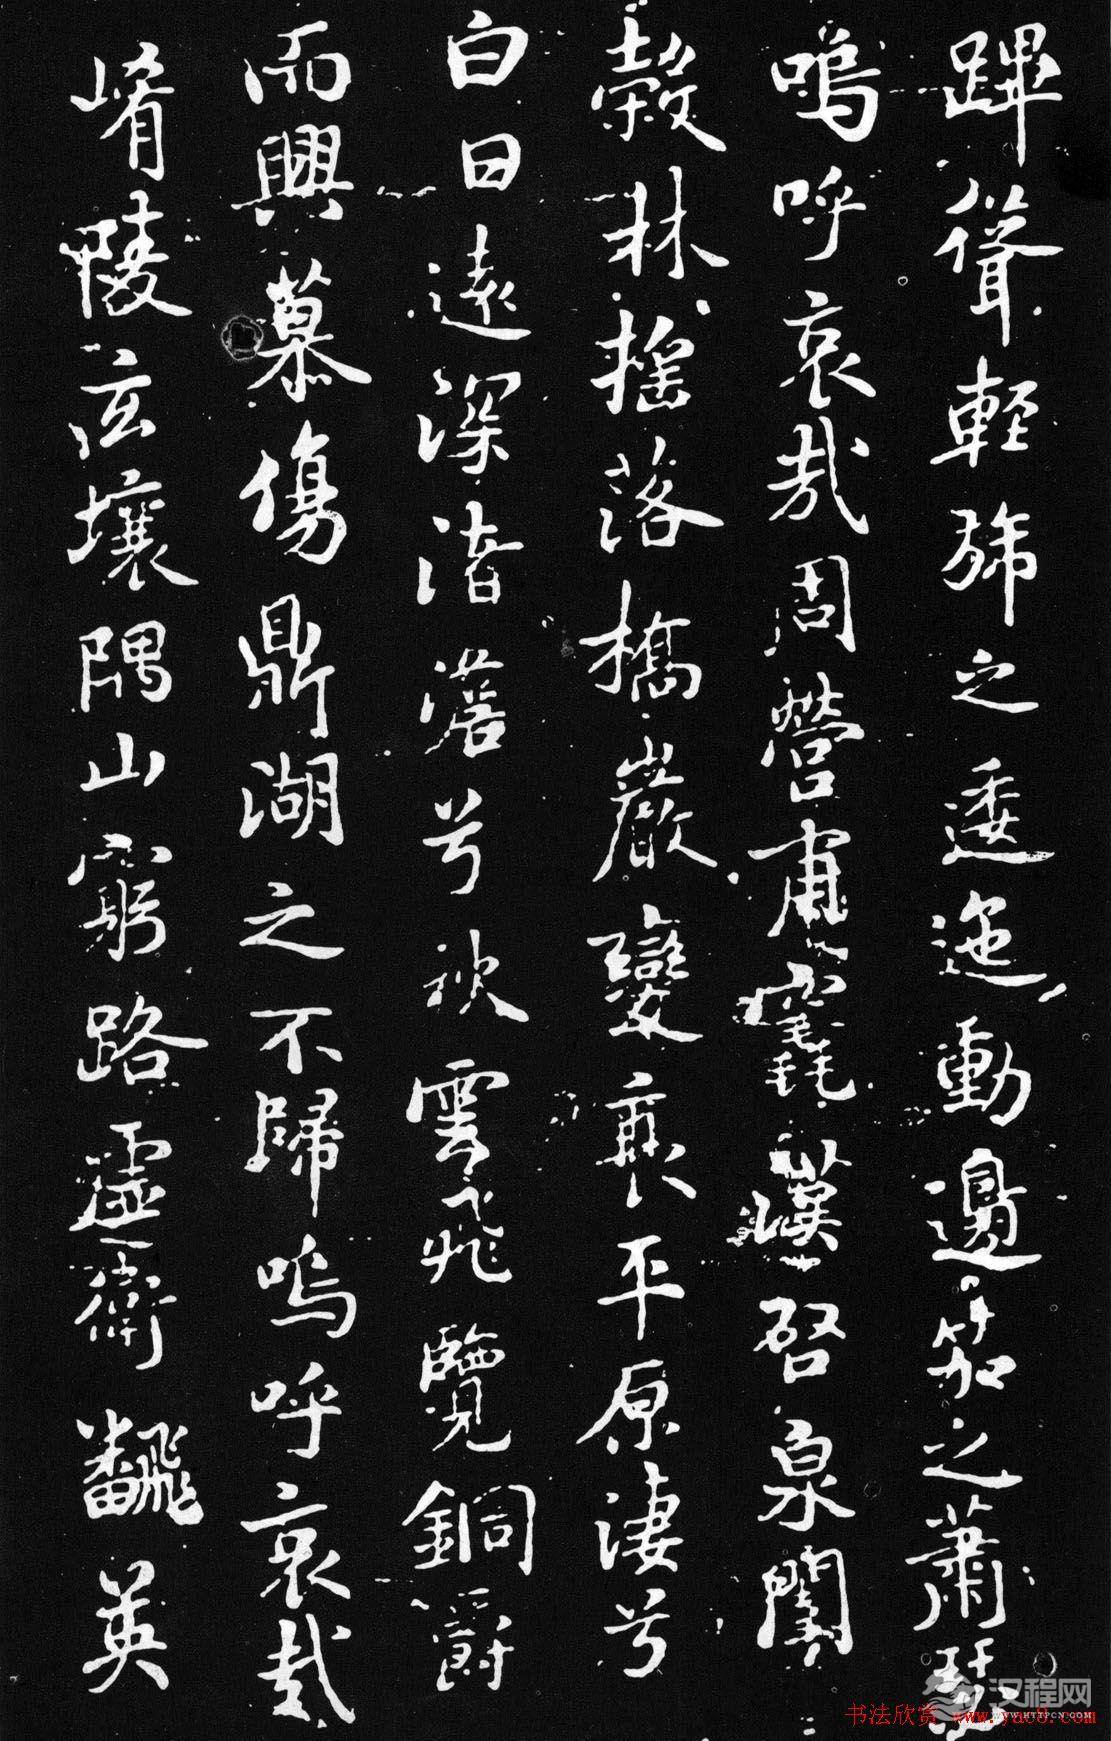 蹕聳輕旆之逶迤動邊笳之蕭瑟
嗚呼哀哉周營甫竁漢啓泉闈
穀林搖落橋巖變衰平原淒兮
白日遠深渚澹兮秋雲飛覽銅爵
而興慕傷鼎湖之不歸嗚呼哀哉
崤陵泫壤隅山窮路虛衛飜英
汉程网
WWW.HTTPCN.COM
书法欣赏 www.yac8.com